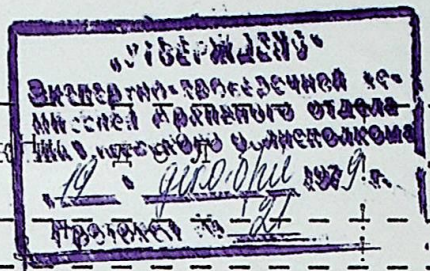 „УТВЕРЖДЕНО“
Экспертно-проверочной ко-
миссией Архивного отдела
облисполкома
„19“ декабря 1979 г.
Протокол № 21